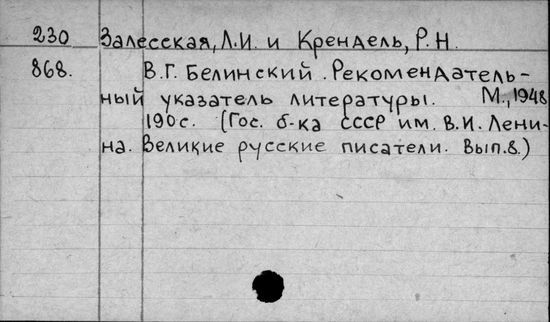 230 Залесская, Л.И. и Крендель, Р.Н.
868. В.Г. Белинский. Рекомендатель-
ный указатель литературы. М., 1948
190с. (Гос. б-ка СССР им. В.И. Лени-
на. Великие русские писатели. Вып.8.)